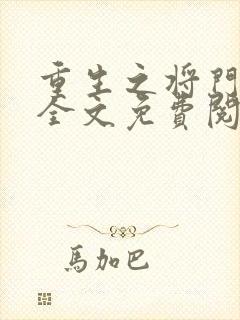 重生之将門
全文免費閱
馬加巴